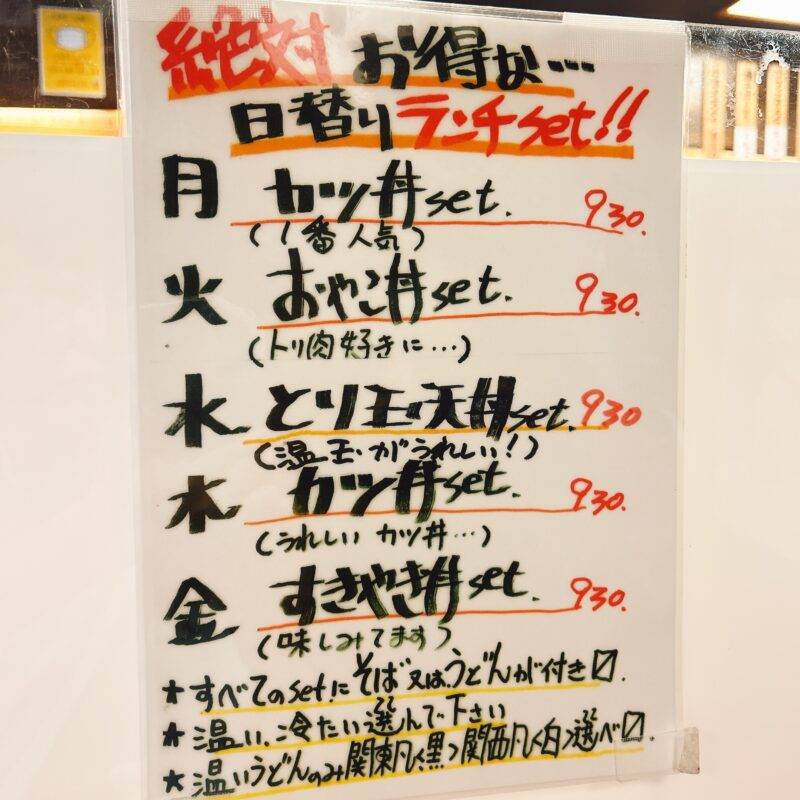 絶対 お得な…
日替り ランチset!!
月 カツ丼set. 930.
(1番人気)
火 おやこ丼set. 930.
(トリ肉好きに…)
水 とり玉天丼set. 930
(温玉がうれしい!)
木 カツ丼set. 930.
(うれしい カツ丼…)
金 すきやき丼set. 930.
(味しみてます)
★すべてのsetにそば又はうどんが付き〼.
★温い、冷たい選んで下さい
★温いうどんのみ関東風<黒>関西風<白>選べ〼.